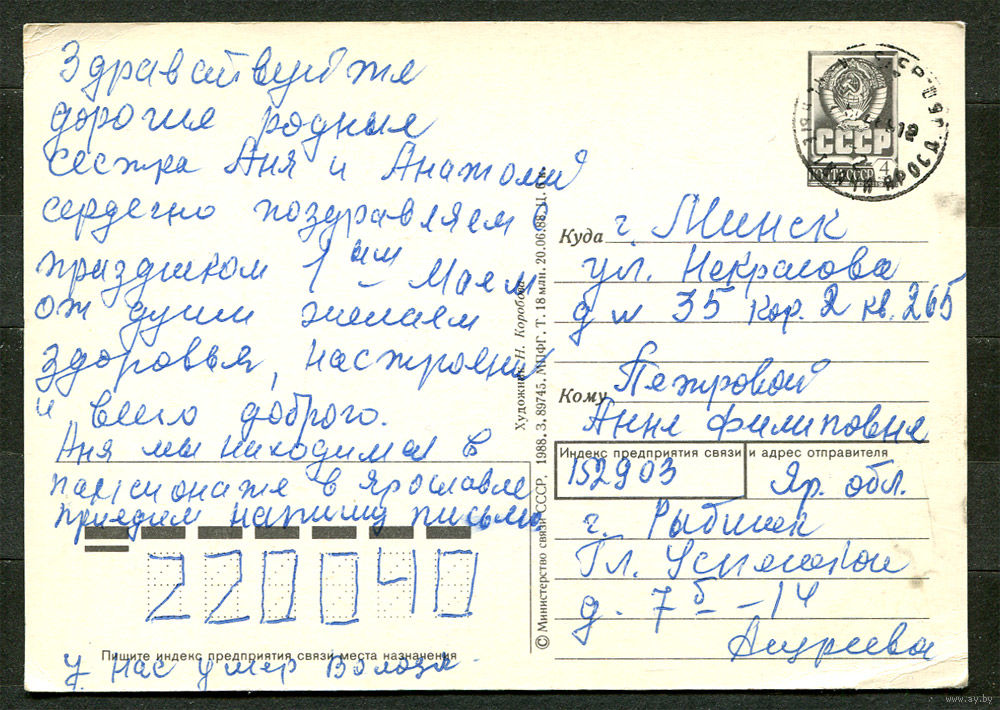 Здравствуйте
дорогие родные
сестра Аня и Анатолий
сердечно поздравляем с
праздником 1 ым Маем
от души желаем
здоровья, настроения
и всего доброго.
Аня мы находимся в
пансионате в Ярославле
приедем напишу письмо
220040
Пишите индекс предприятия связи места назначения
У нас умер Володя.
© Министерство связи СССР, 1988. З. 89745. МПФГ. Т. 18 млн. 20.06.88. Ц. 6 к.
Художник Н. Коробова
СССР
4
ПОЧТА СССР
Куда г. Минск
ул. Некрасова
д № 35 кор. 2 кв. 265
Кому Петровой
Анне Филиповне
Индекс предприятия связи и адрес отправителя
152903 Яр. обл.
г. Рыбинск
Гл. Успенского
д. 7 б - 14
Андреева
www.ay.by